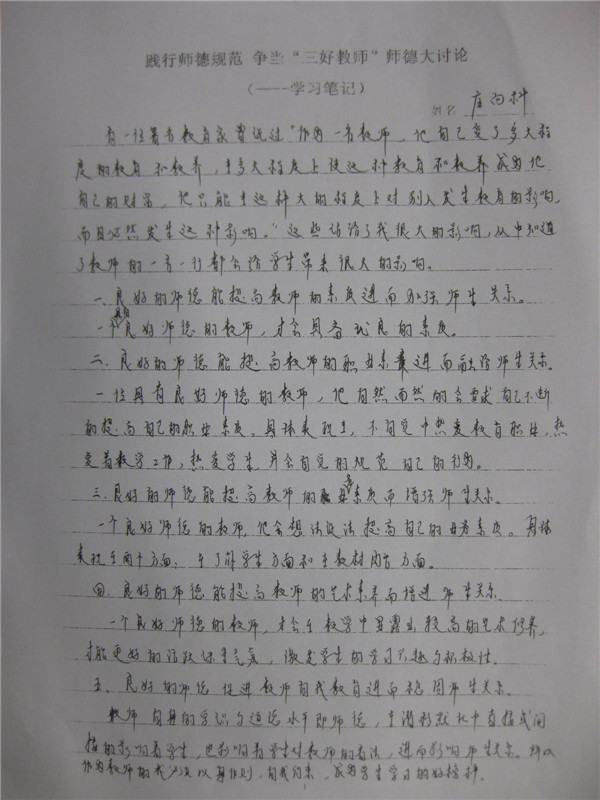 践行师德规范 争当“三好教师”师德大讨论
（——学习笔记）
姓名 科
有一位著名教育家曾说过“作为一名教师，他自己受了多大程
度的教育和教养，在多大程度上使这种教育和教养成为他
自己的财富，他只能在这样大的程度上对别人发生教育的影响，
而且必然发生这种影响。”这些话给了我很大的影响，从中知道
了教师的一言一行都会给学生带来很大的影响。
一、良好的师德能提高教师的素质进而加强师生关系。
一个具有良好师德的教师，才会具备优良的素质。
二、良好的师德能提高教师的职业素养进而融洽师生关系。
一位具有良好师德的教师，他自然而然的会要求自己不断
的提高自己的职业素质。具体表现在，不自觉中热爱教育职业，热
爱着教学工作，热爱学生，并会自觉的规范自己的行为。
三、良好的师德能提高教师的业务素质而增强师生关系。
一个良好师德的教师，他会想法设法提高自己的业务素质。具体
表现在两个方面：在了解学生方面和在教材内容方面。
四、良好的师德能提高教师的艺术素养而增进师生关系。
一个良好师德的教师，才会在教学中显露出较高的艺术修养，
才能更好的活跃课堂气氛，激发学生的学习兴趣与积极性。
五、良好的师德促进教师自我教育进而稳固师生关系。
教师自身的学识与道德水平即师德，在潜移默化中直接或间
接的影响着学生，也影响着学生对教师的看法，进而影响师生关系。所以
作为教师的我必须以身作则，自我约束，成为学生学习的好榜样。